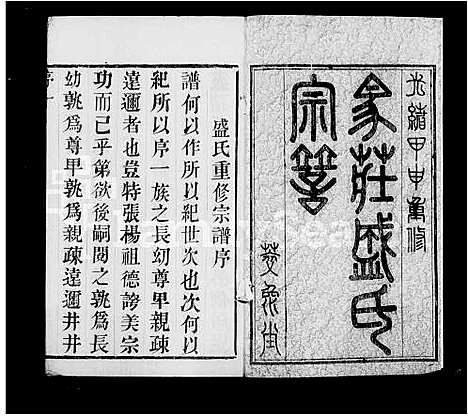 光緒甲申重修
象莊盛氏
宗譜
堂
盛氏重修宗譜序
譜何以作所以紀世次也次何以
紀所以序一族之長幼尊卑親疎
遠邇者也豈特張楊祖德誇美宗
功而已乎第欲後嗣閱之孰為長
幼孰為尊卑孰為親疎遠邇井井
序一